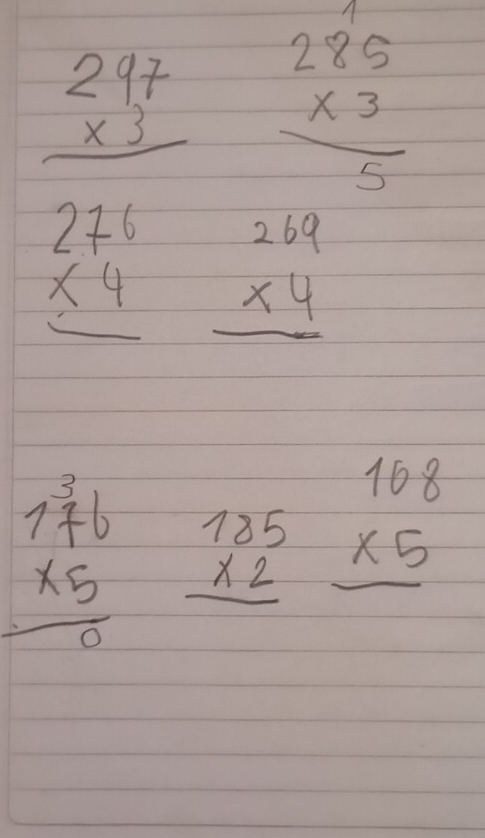 1
297 285
x 3 x 3
5
276 269
x 4 x 4
3
176 185 168
x5 x2 x 5
0